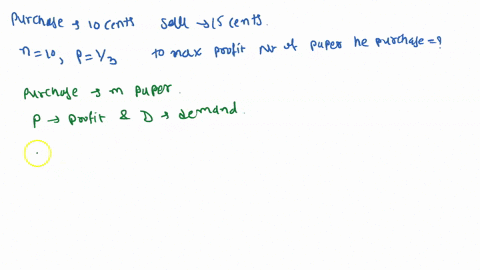 Purchase → 10 cents sell → 15 cents.
n = 10, p = 1/3 to max profit Nr of paper he purchase = ?
purchase → m paper.
P → profit & D → demand.